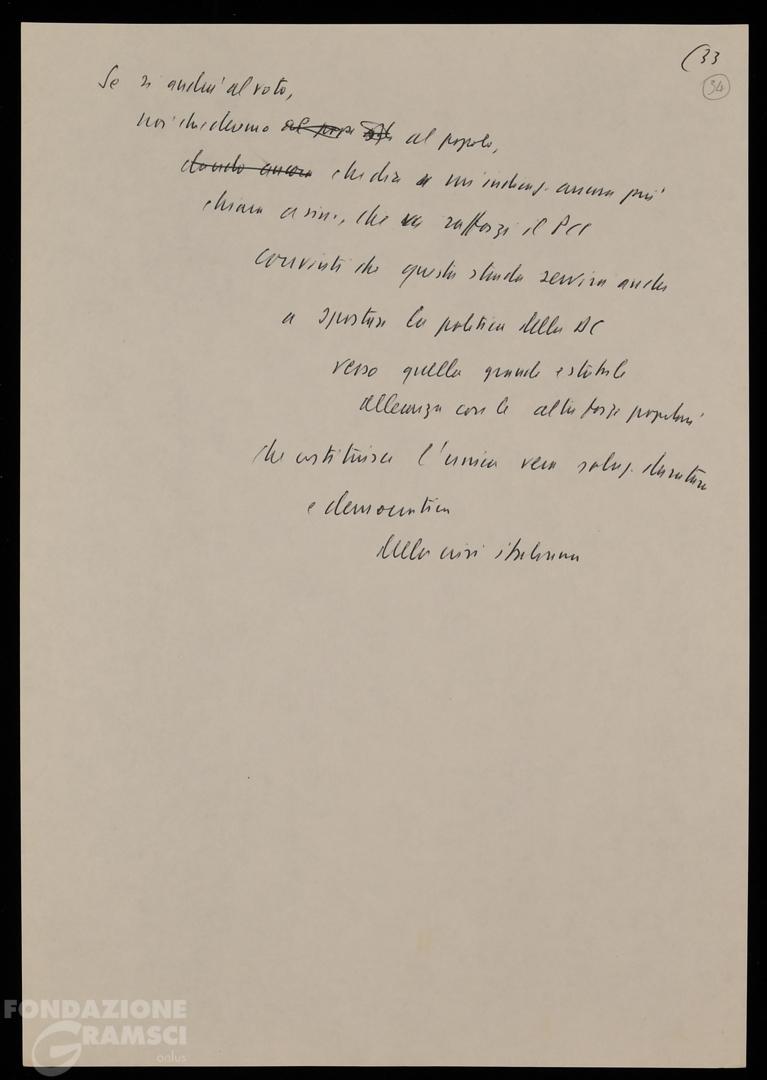 (33
34
Se si andrà al voto,
noi chiediamo al popolo,
dando ancora che dia un'indicaz. ancora più
chiara a sin., che rafforzi il PCI
convinti che questa strada servirà anche
a spostare la politica della DC
verso quella grande e stabile
alleanza con le altre forze popolari
che costituisce l'unica vera soluz. duratura
e democratica
della crisi italiana
FONDAZIONE
GRAMSCI
onlus